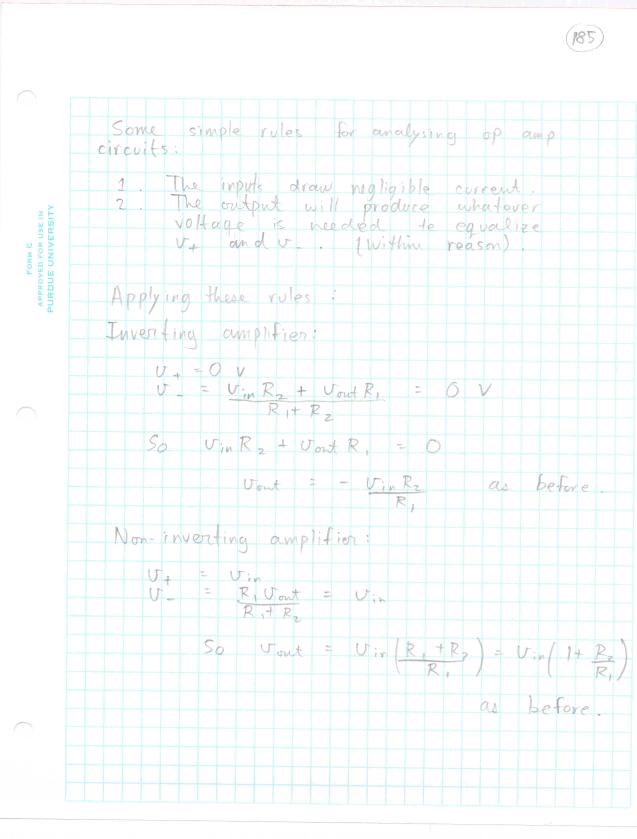 185
FORM C
APPROVED FOR USE IN
PURDUE UNIVERSITY
Some simple rules for analysing op amp
circuits:
1. The inputs draw negligible current.
2. The output will produce whatever
voltage is needed to equalize
v₊ and v₋. (Within reason).
Applying these rules:
Inverting amplifier:
v₊ = 0 V
v₋ = (v_in R₂ + v_out R₁) / (R₁ + R₂) = 0 V
So v_in R₂ + v_out R₁ = 0
v_out = - v_in R₂ / R₁ as before.
Non-inverting amplifier:
v₊ = v_in
v₋ = R₁ v_out / (R₁ + R₂) = v_in
So v_out = v_in ((R₁ + R₂) / R₁) = v_in (1 + R₂ / R₁)
as before.